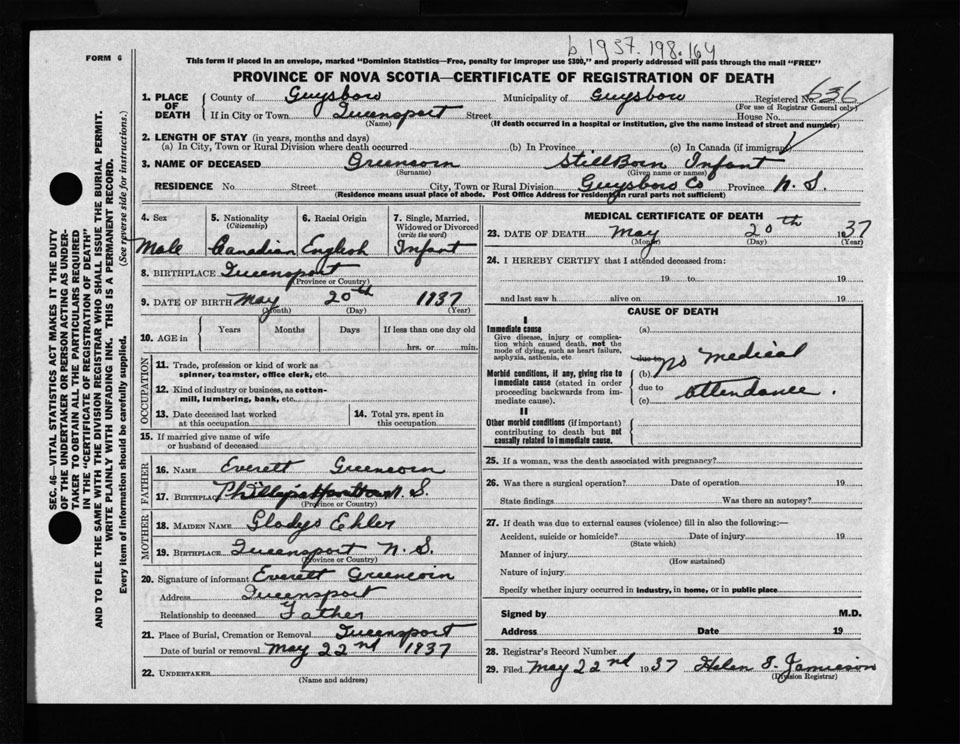 b 1937.198.164
FORM 6
This form if placed in an envelope, marked "Dominion Statistics—Free, penalty for improper use $300," and properly addressed will pass through the mail "FREE"
PROVINCE OF NOVA SCOTIA—CERTIFICATE OF REGISTRATION OF DEATH
1. PLACE OF DEATH County of Guysboro Municipality of Guysboro Registered No. 636
(For use of Registrar General only)
If in City or Town Queensport Street House No.
(Name) (If death occurred in a hospital or institution, give the name instead of street and number)
2. LENGTH OF STAY (in years, months and days)
(a) In City, Town or Rural Division where death occurred (b) In Province (c) In Canada (if immigrant)
3. NAME OF DECEASED Greencorn StillBorn Infant
(Surname) (Given name or names)
RESIDENCE No. Street City, Town or Rural Division Guysboro Co Province N. S.
(Residence means usual place of abode. Post Office Address for residents in rural parts not sufficient)
4. Sex 5. Nationality (Citizenship) 6. Racial Origin 7. Single, Married, Widowed or Divorced (write the word)
Male Canadian English Infant
8. BIRTHPLACE Queensport
(Province or Country)
9. DATE OF BIRTH May 20th 1937
(Month) (Day) (Year)
10. AGE in Years Months Days If less than one day old
hrs. or min.
OCCUPATION
11. Trade, profession or kind of work as
spinner, teamster, office clerk, etc.
12. Kind of industry or business, as cotton-
mill, lumbering, bank, etc.
13. Date deceased last worked
at this occupation
14. Total yrs. spent in
this occupation
15. If married give name of wife
or husband of deceased
FATHER
16. NAME Everett Greencorn
17. BIRTHPLACE N. S.
(Province or Country)
MOTHER
18. MAIDEN NAME Gladys Ehler
19. BIRTHPLACE Queensport N. S.
(Province or Country)
20. Signature of informant Everett Greencorn
Address Queensport
Relationship to deceased Father
21. Place of Burial, Cremation or Removal Queensport
Date of burial or removal May 22nd 1937
22. UNDERTAKER
(Name and address)
MEDICAL CERTIFICATE OF DEATH
23. DATE OF DEATH May 20th 1937
(Month) (Day) (Year)
24. I HEREBY CERTIFY that I attended deceased from:
19 to 19
and last saw h alive on 19
CAUSE OF DEATH
I
Immediate cause
Give disease, injury or complica-
tion which caused death, not the
mode of dying, such as heart failure,
asphyxia, asthenia, etc
(a)
due to
Morbid conditions, if any, giving rise to
immediate cause (stated in order
proceeding backwards from im-
mediate cause).
(b) No medical
due to
(c) attendance.
II
Other morbid conditions (if important)
contributing to death but not
causally related to immediate cause.
25. If a woman, was the death associated with pregnancy?
26. Was there a surgical operation? Date of operation 19
State findings Was there an autopsy?
27. If death was due to external causes (violence) fill in also the following:—
Accident, suicide or homicide? Date of injury 19
(State which)
Manner of injury
(How sustained)
Nature of injury
Specify whether injury occurred in industry, in home, or in public place
Signed by M.D.
Address Date 19
28. Registrar's Record Number
29. Filed May 22nd 1937 Helen S. Jamieson
(Division Registrar)
SEC. 46—VITAL STATISTICS ACT MAKES IT THE DUTY
OF THE UNDERTAKER OR PERSON ACTING AS UNDER-
TAKER TO OBTAIN ALL THE PARTICULARS REQUIRED
IN THE "CERTIFICATE OF REGISTRATION OF DEATH"
AND TO FILE THE SAME WITH THE DIVISION REGISTRAR WHO SHALL ISSUE THE BURIAL PERMIT.
WRITE PLAINLY WITH UNFADING INK. THIS IS A PERMANENT RECORD.
Every item of information should be carefully supplied. (See reverse side for instructions.)